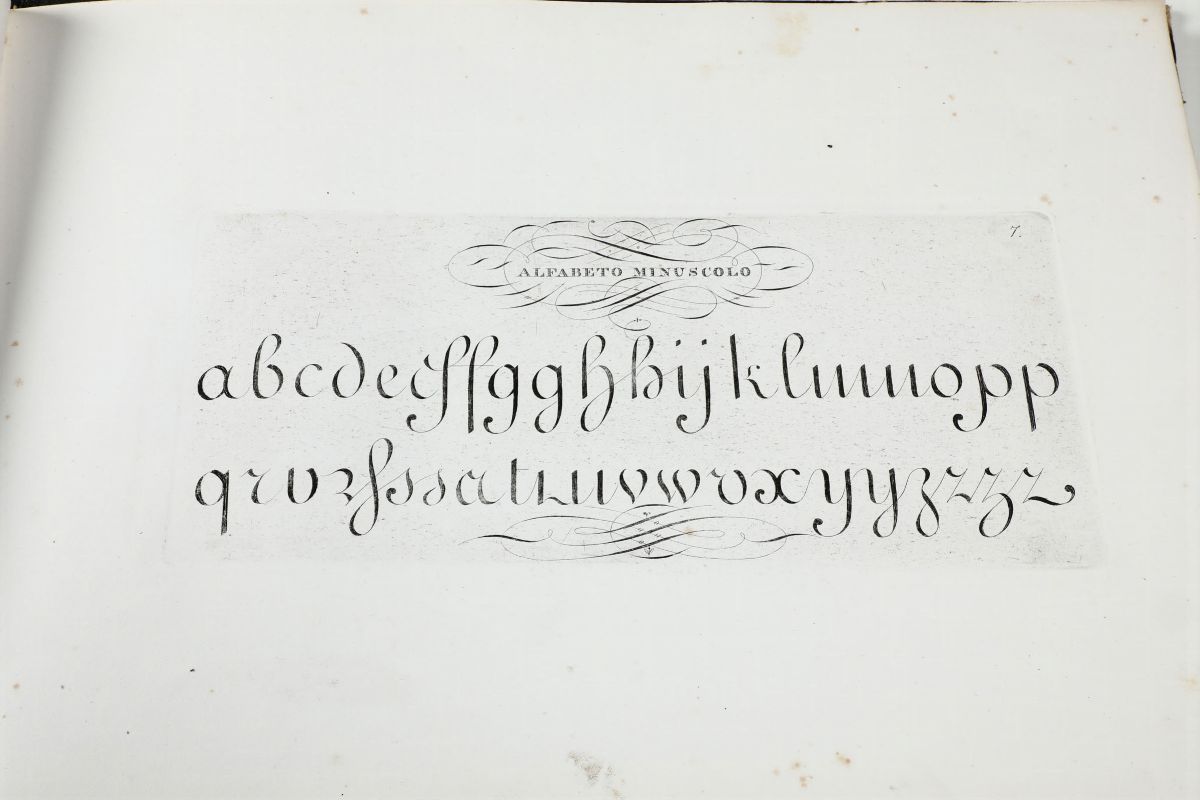 7.
ALFABETO MINUSCOLO
abcdecffgghhijklmnopp
qrvrſsſatuvwvxyyzzzz